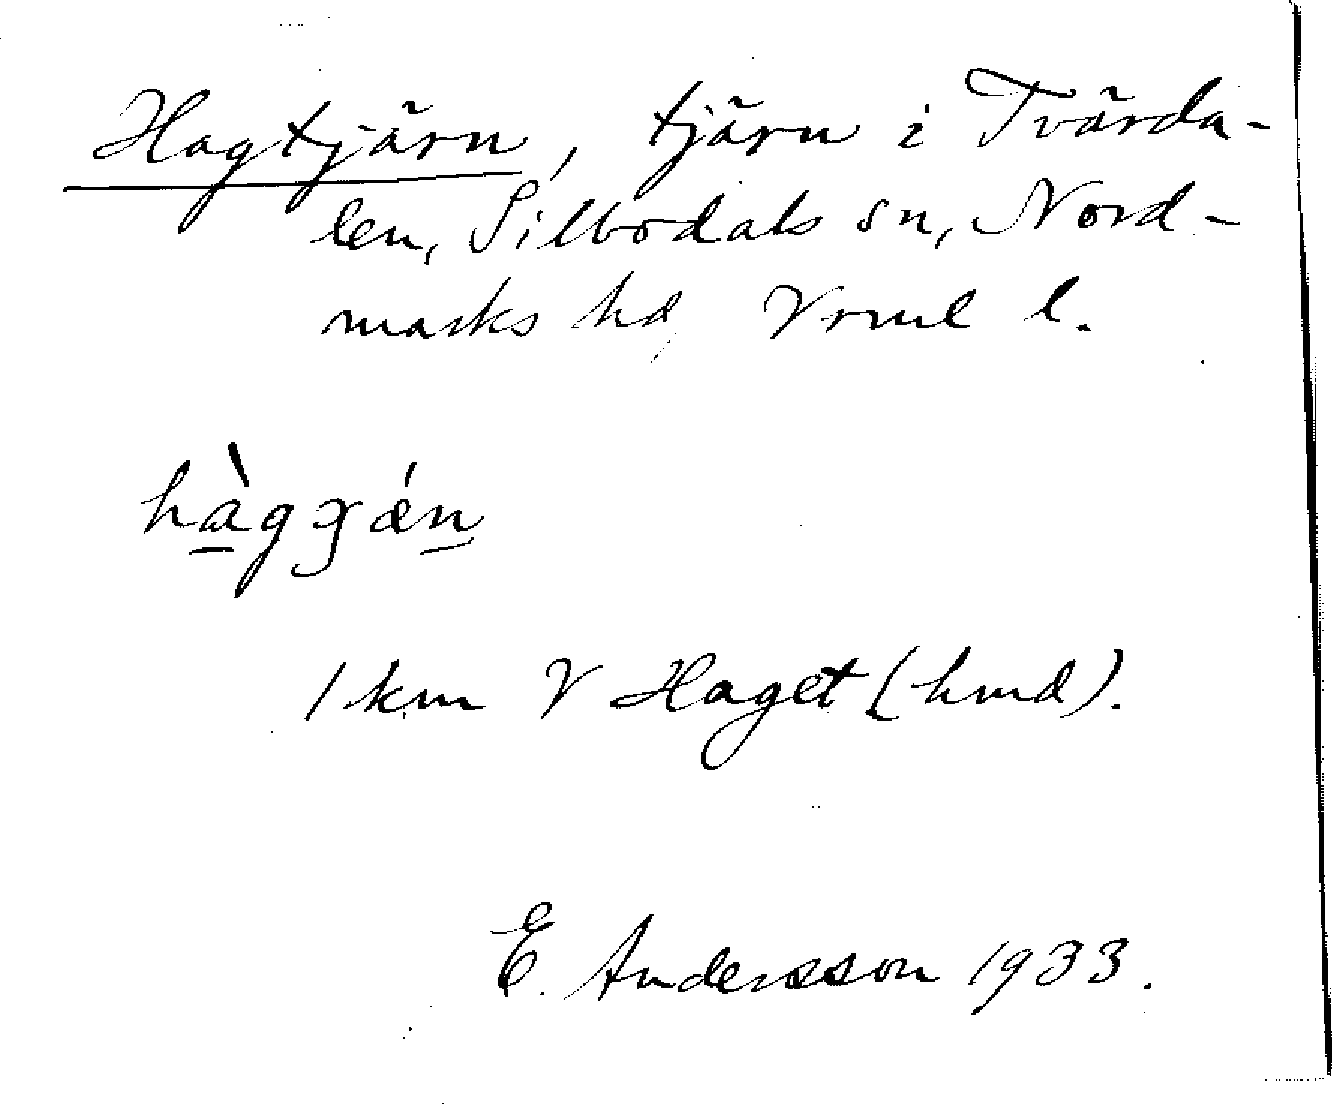 Hagtjärn, tjärn i Tvärda-
len, Silbodals sn, Nord-
marks hd, Vrml l.
hàgɡǽn
1 km V Haget (hmd).
E. Andersson 1933.